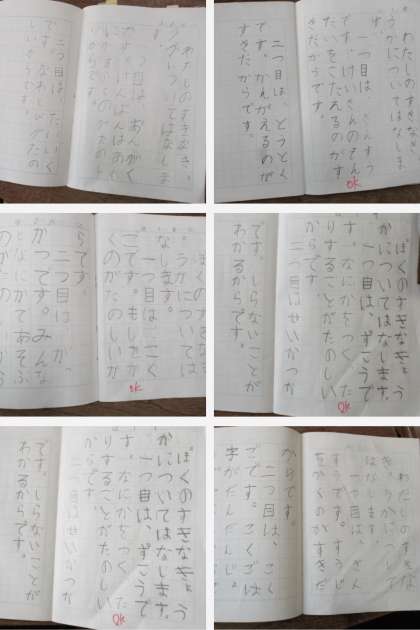 わたしのすきなき
うかについてはなしま
す。
一つ目は、おんがく
です。けんばんはーも
にかをふくのがたのし
いからです。
二つ目は、たいいく
です。なわとびがたの
しいからです。
わたしのすきなき
うかについてはなしま
す。
一つ目は、さんすう
です。けいさんのもん
だいをこたえるのがす
きだからです。
二つ目は、どうとく
です。かんがえるのが
すきだからです。
ok
ぼくのすきなき
うかについては
なします。
一つ目は、こく
ごです。もじをか
くのがたのしいか
らです。
二つ目は
かつです。みんな
ok
ぼくのすきなきょう
かについてはなします。
一つ目は、ずこうで
す。なにかをつくった
りすることがたのしい
からです。
二つ目はせいかつか
です。しらないことが
わかるからです。
ok
ぼくのすきなきょう
かについてはなします。
一つ目は、ずこうで
す。なにかをつくった
りすることがたのしい
からです。
二つ目はせいかつか
です。しらないことが
わかるからです。
ok
わたしのすきな
きょうかについて
はなします。
一つ目は、さん
すうです。すうじ
をかくのがすきだ
からです。
二つ目は、こく
ごです。こくごは
字がだんだん